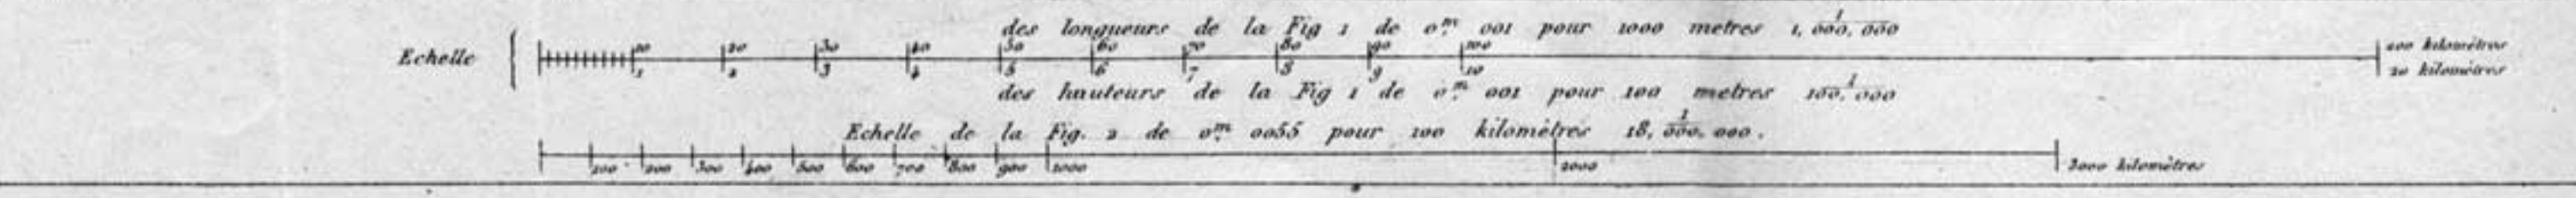 des longueurs de la Fig 1 de 0m. 001 pour 1000 metres 1/1,000,000
Echelle
10 20 30 40 50 60 70 80 90 100 200 kilomètres
1 2 3 4 5 6 7 8 9 10 20 kilomètres
des hauteurs de la Fig 1 de 0m. 001 pour 100 metres 1/100,000
Echelle de la Fig. 2 de 0m. 0055 pour 100 kilomètres 1/18,000,000.
100 200 300 400 500 600 700 800 900 1000 2000 3000 kilomètres